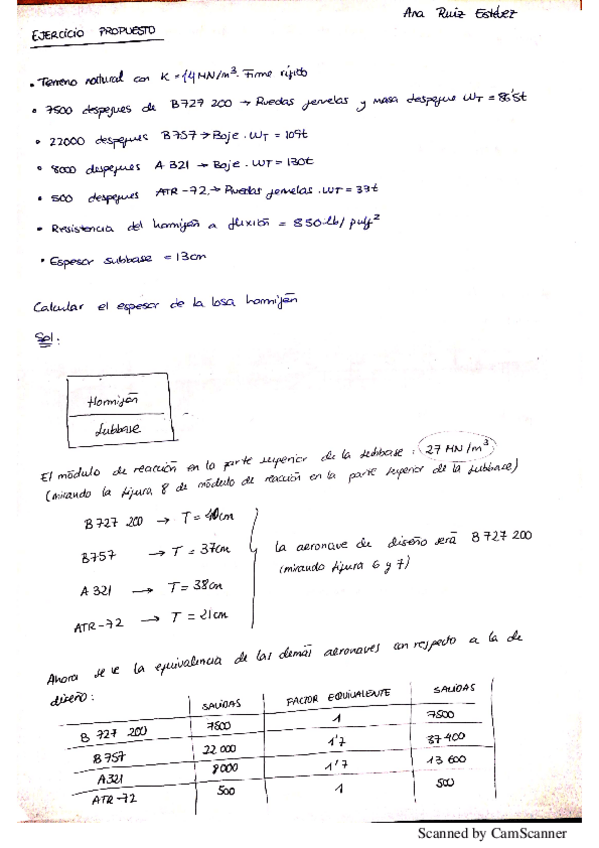 Ana Ruiz Estévez
EJERCICIO PROPUESTO
• Terreno natural con K = 14 MN/m³. Firme rígido
• 7500 despegues de B727 200 → Ruedas gemelas y masa despegue WT = 86'5t
• 22000 despegues B757 → Boje. WT = 109t
• 8000 despegues A 321 → Boje. WT = 130t
• 500 despegues ATR-72 → Ruedas gemelas. WT = 33t
• Resistencia del hormigón a flexión = 850 lb/pulg²
• Espesor subbase = 13cm
Calcular el espesor de la losa hormigón
Sol:
Hormigón
Subbase
El módulo de reacción en la parte superior de la subbase: 27 MN/m³
(mirando la figura 8 de módulo de reacción en la parte superior de la subbase)
B727 200 → T = 40cm
B757 → T = 37cm
A 321 → T = 38cm
ATR-72 → T = 21cm
la aeronave de diseño será B 727 200
(mirando figura 6 y 7)
Ahora se ve la equivalencia de las demás aeronaves con respecto a la de
diseño:
SALIDAS FACTOR EQUIVALENTE SALIDAS
B 727 200 7500 1 7500
B757 22 000 1'7 37 400
A321 8000 1'7 13 600
ATR-72 500 1 500
Scanned by CamScanner